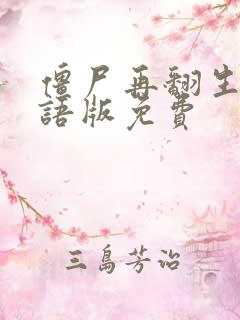 僵尸再翻生
語版免費
三島芳治